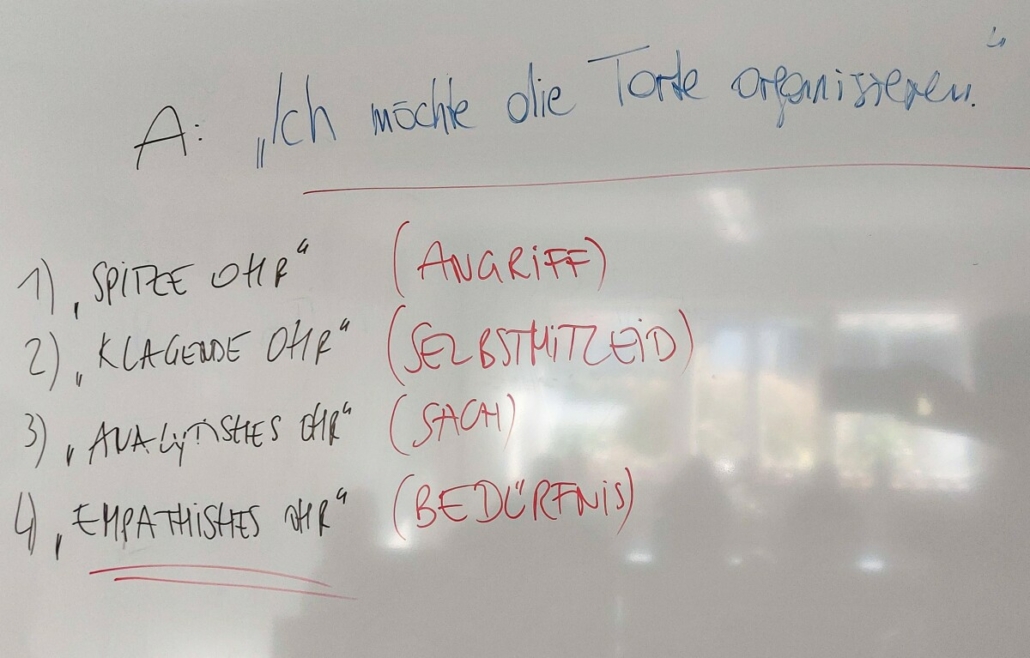 A: „Ich möchte die Torte organisieren.“
1) „SPITZE OHR“ (ANGRIFF)
2) „KLAGENDE OHR“ (SELBSTMITLEID)
3) „ANALYTISCHES OHR“ (SACH)
4) „EMPATHISCHES OHR“ (BEDÜRFNIS)